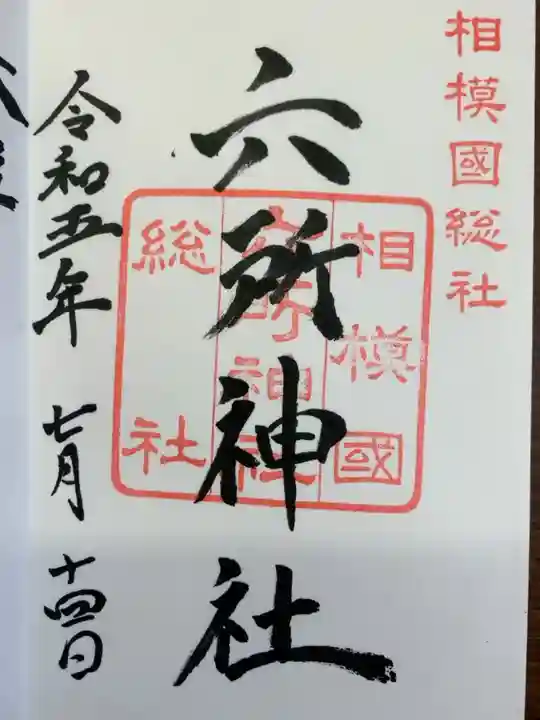 相模國総社
六所神社
相模國
六所神社
総社
令和五年 七月 十四日